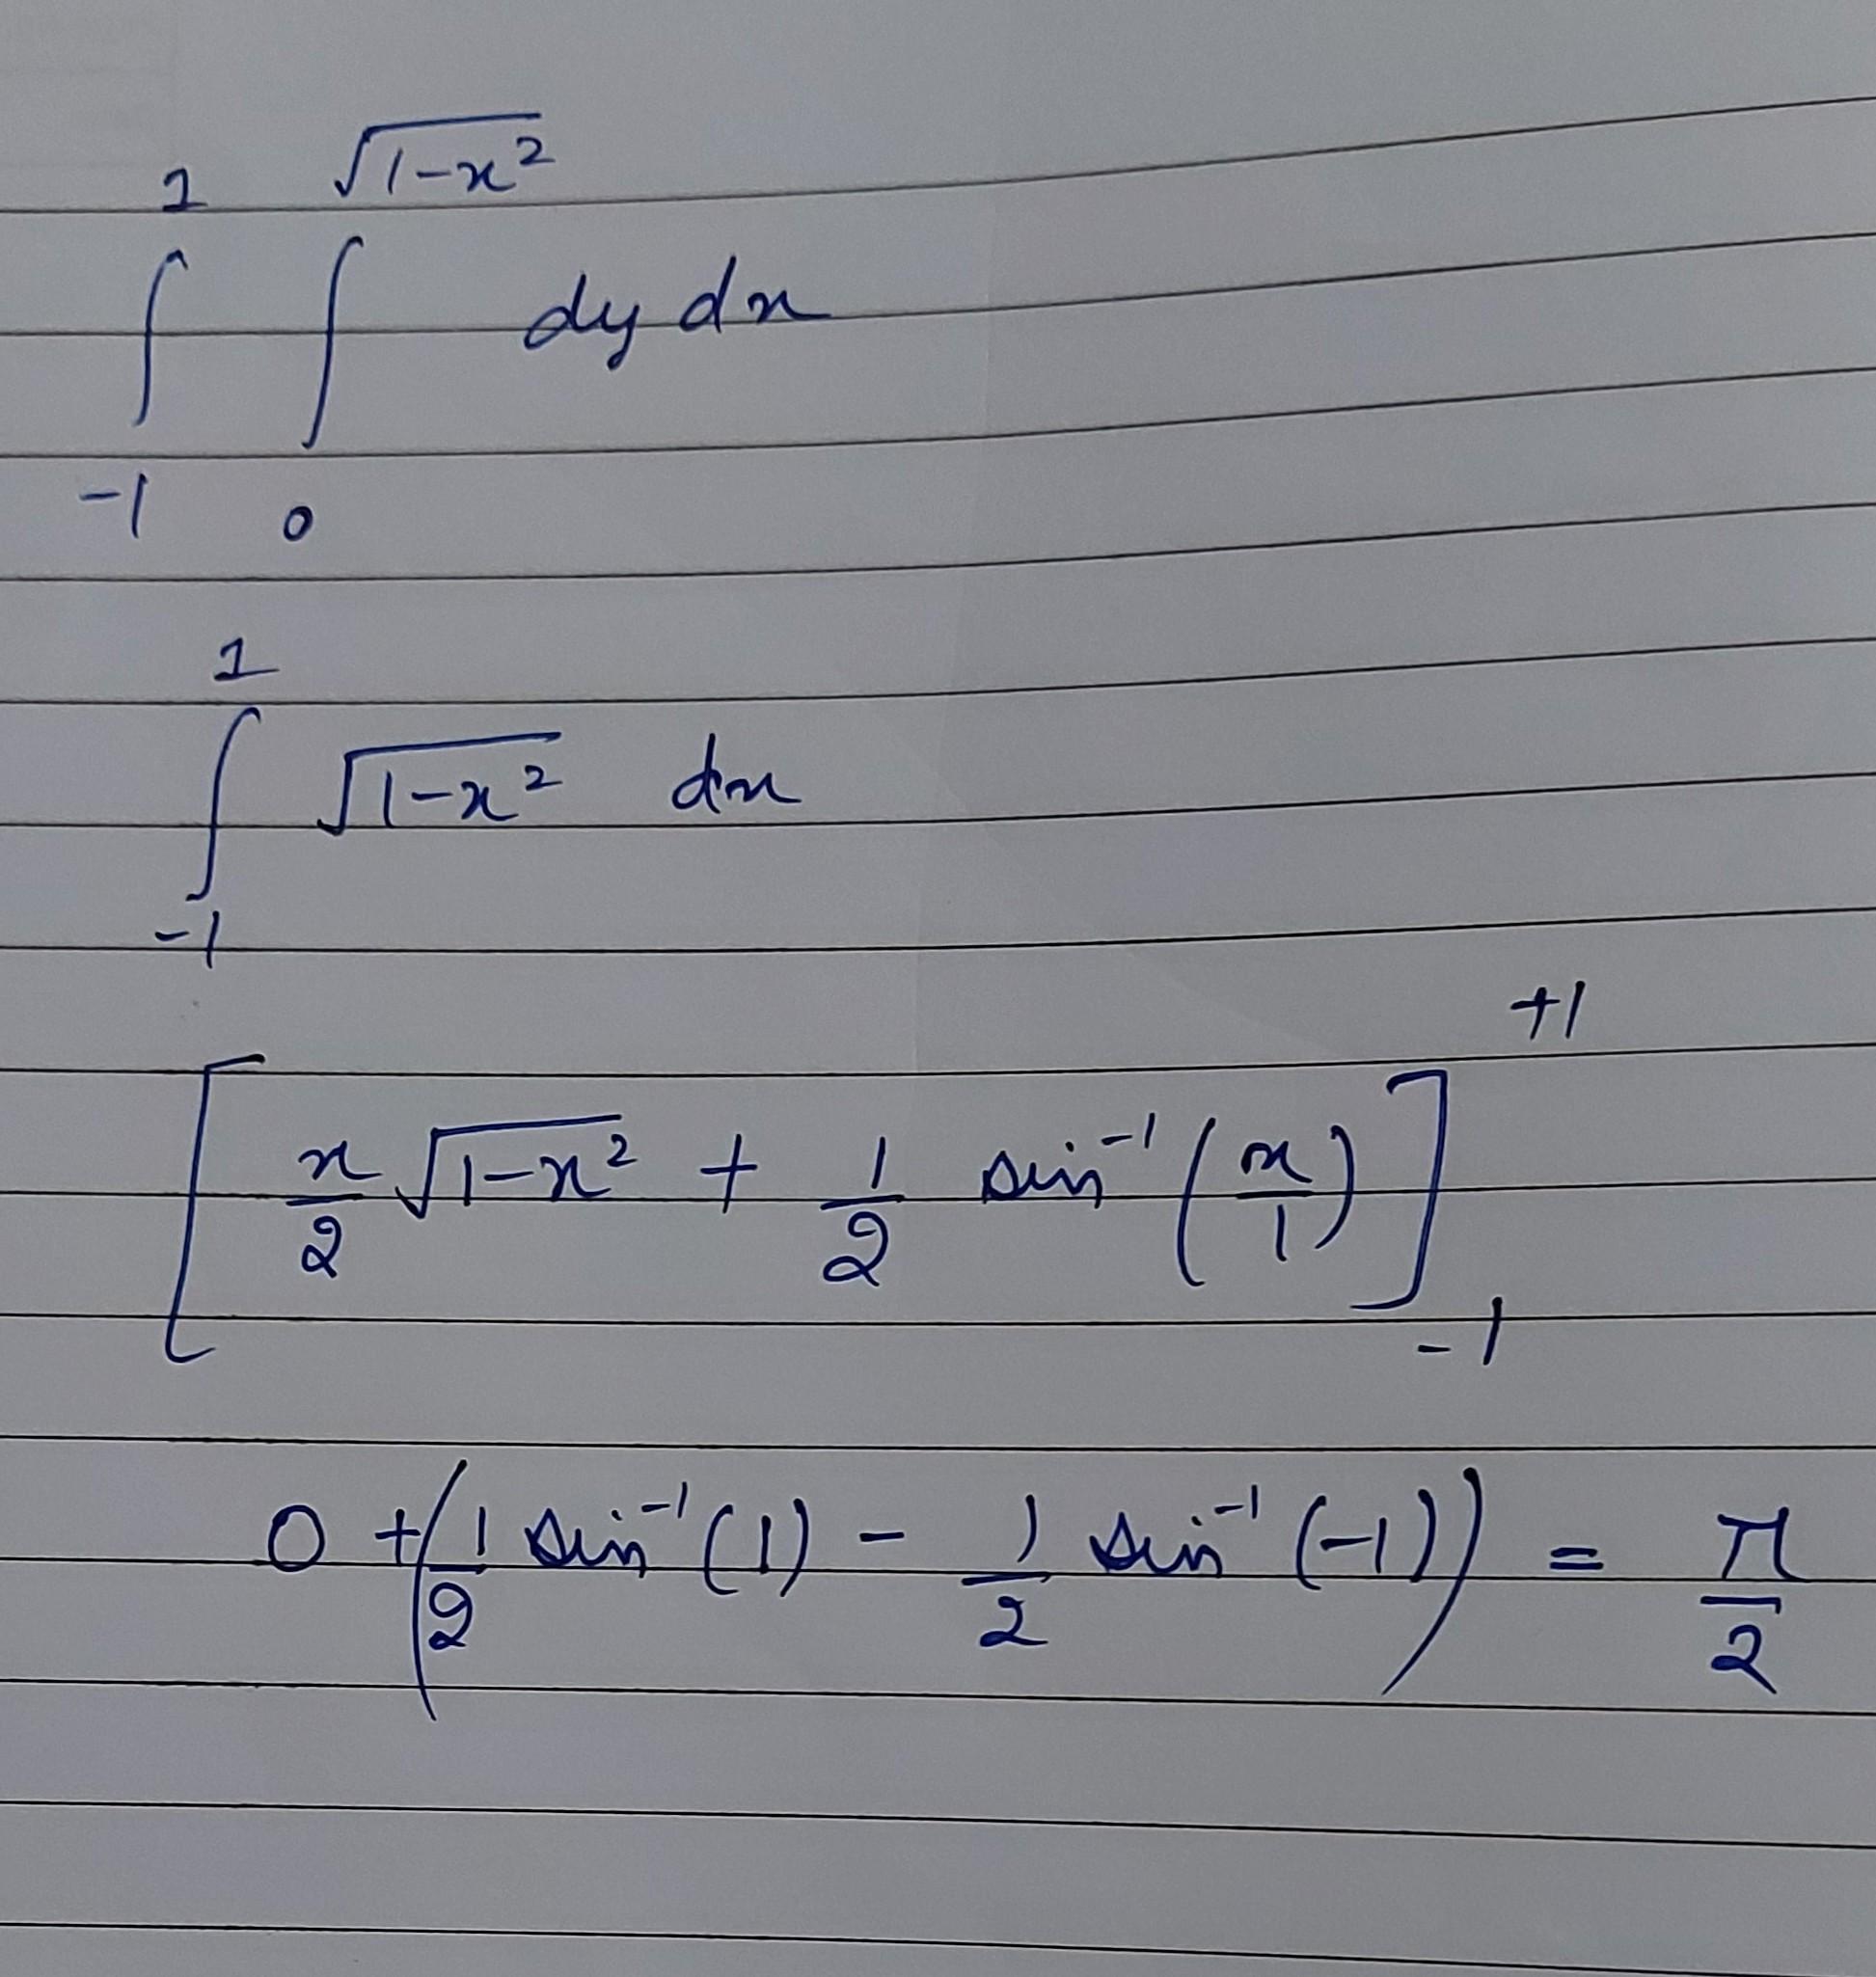 ∫_{-1}^{1} ∫_{0}^{√(1-x²)} dy dx
∫_{-1}^{1} √(1-x²) dx
[ x/2 √(1-x²) + 1/2 sin⁻¹(x/1) ]_{-1}^{+1}
0 + (1/2 sin⁻¹(1) - 1/2 sin⁻¹(-1)) = π/2